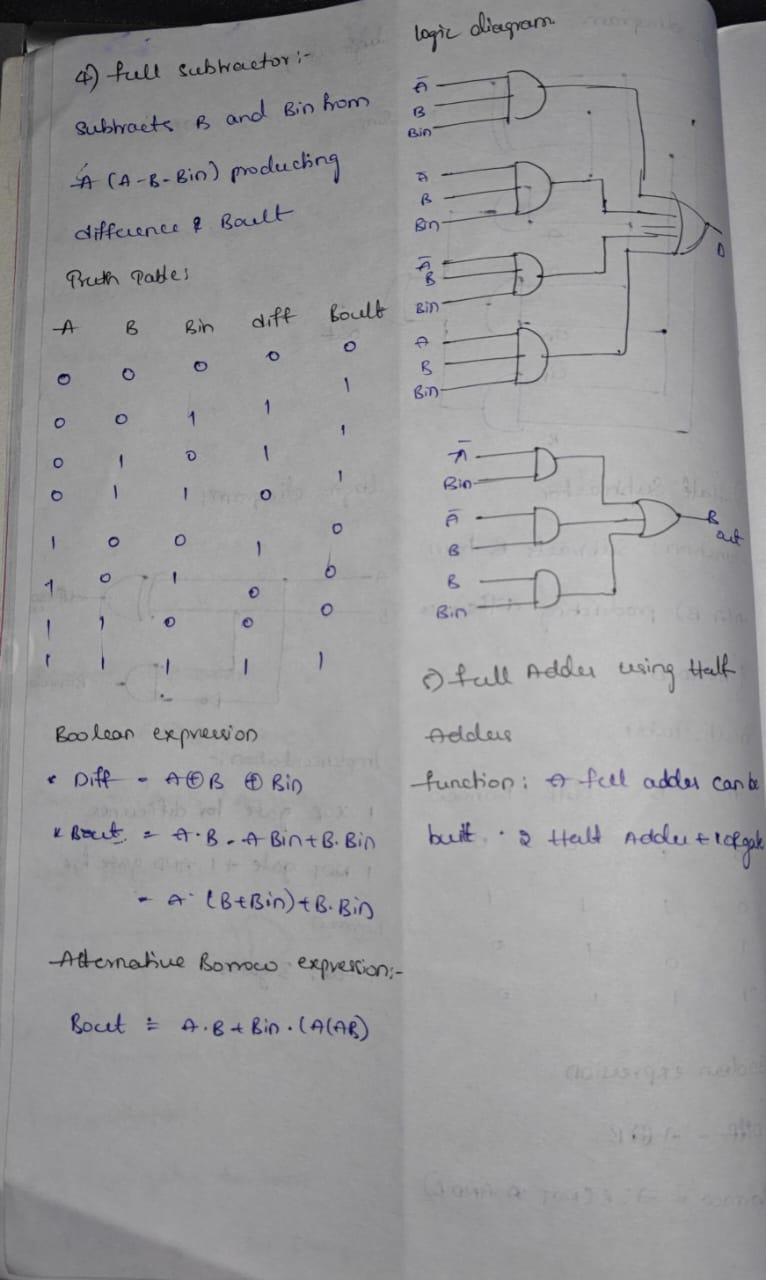 4) full subtractor:-
Subtracts B and Bin from
A (A-B-Bin) producting
difference & Boult
Truth Table:
A B Bin diff Boult
0 0 0 0 0
0 0 1 1 1
0 1 0 1 1
0 1 1 0 1
1 0 0 1 0
1 0 1 0 0
1 1 0 0 0
1 1 1 1 1
Boolean expression
* Diff = A⊕B ⊕ Bin
* Bout = A·B - A Bin + B. Bin
= A· (B+Bin)+B.Bin
Alternative Borrow expression:-
Bout = A.B + Bin. (A(AB)
logic diagram
Ā
B
Bin
A
B
Bin
Ā
B
Bin
A
B
Bin
D
Ā
Bin
Ā
B
B
Bin
B out
5) full Adder using Half
Adders
function: A full adder can be
built. 2 Half Adder + 1 OR gate